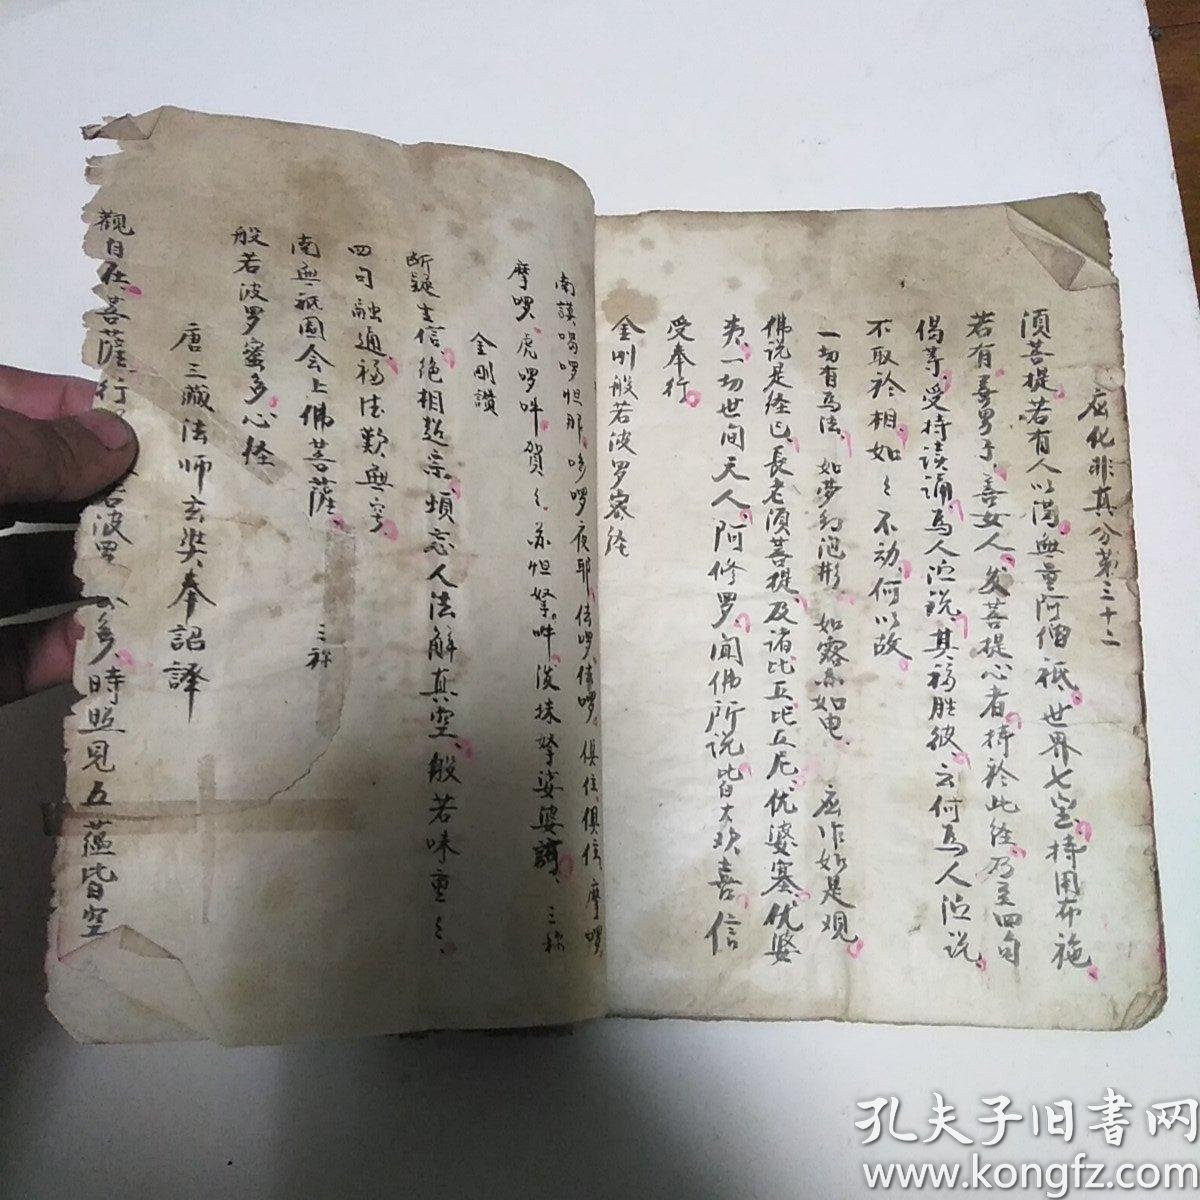 应化非真分第三十二
须菩提若有人以满無量阿僧祇世界七宝持用布施
若有善男子善女人发菩提心者持於此经乃至四句
偈等受持读诵為人演説其福胜彼云何為人演説
不取於相如〻不动何以故
一切有為法 如梦幻泡影 如露亦如电 应作如是观
佛说是经已長老须菩提及诸比丘比丘尼优婆塞优婆
夷一切世间天人阿修罗闻佛所说皆大欢喜信
受奉行
金刚般若波罗宻经
南謨喝啰怛那哆啰夜耶佉啰佉啰俱住俱住摩啰
摩啰虎啰吽賀〻苏怛拏吽泼抹拏娑婆訶 三称
金刚讃
断疑生信绝相超宗頓忘人法解真空般若味重〻
四句融通福德歎無穷
南無祇園会上佛菩薩 三称
般若波罗蜜多心经
唐三藏法师玄奘奉詔譯
觀自在菩薩行 若波罗 多時照見五蕴皆空
孔夫子旧書网
www.kongfz.com